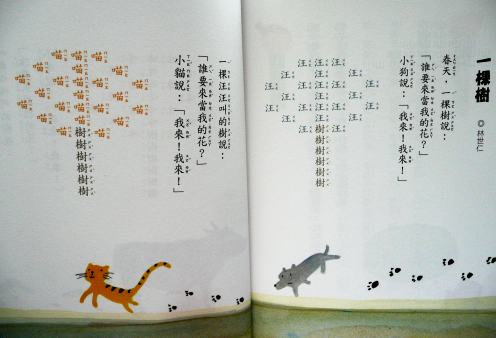 一棵樹
◎林世仁
春天,一棵樹說:
「誰要來當我的花?」
小狗說:「我來!我來!」
汪
汪汪
汪汪汪
汪汪汪汪
汪汪汪汪汪汪樹樹樹樹樹樹
汪汪汪汪
汪汪汪
汪汪
一棵汪汪叫的樹說:
「誰要來當我的花?」
小貓說:「我來!我來!」
喵喵
喵喵喵
喵喵喵喵
喵喵喵喵喵喵樹樹樹樹樹樹
喵喵喵喵
喵喵喵
喵喵